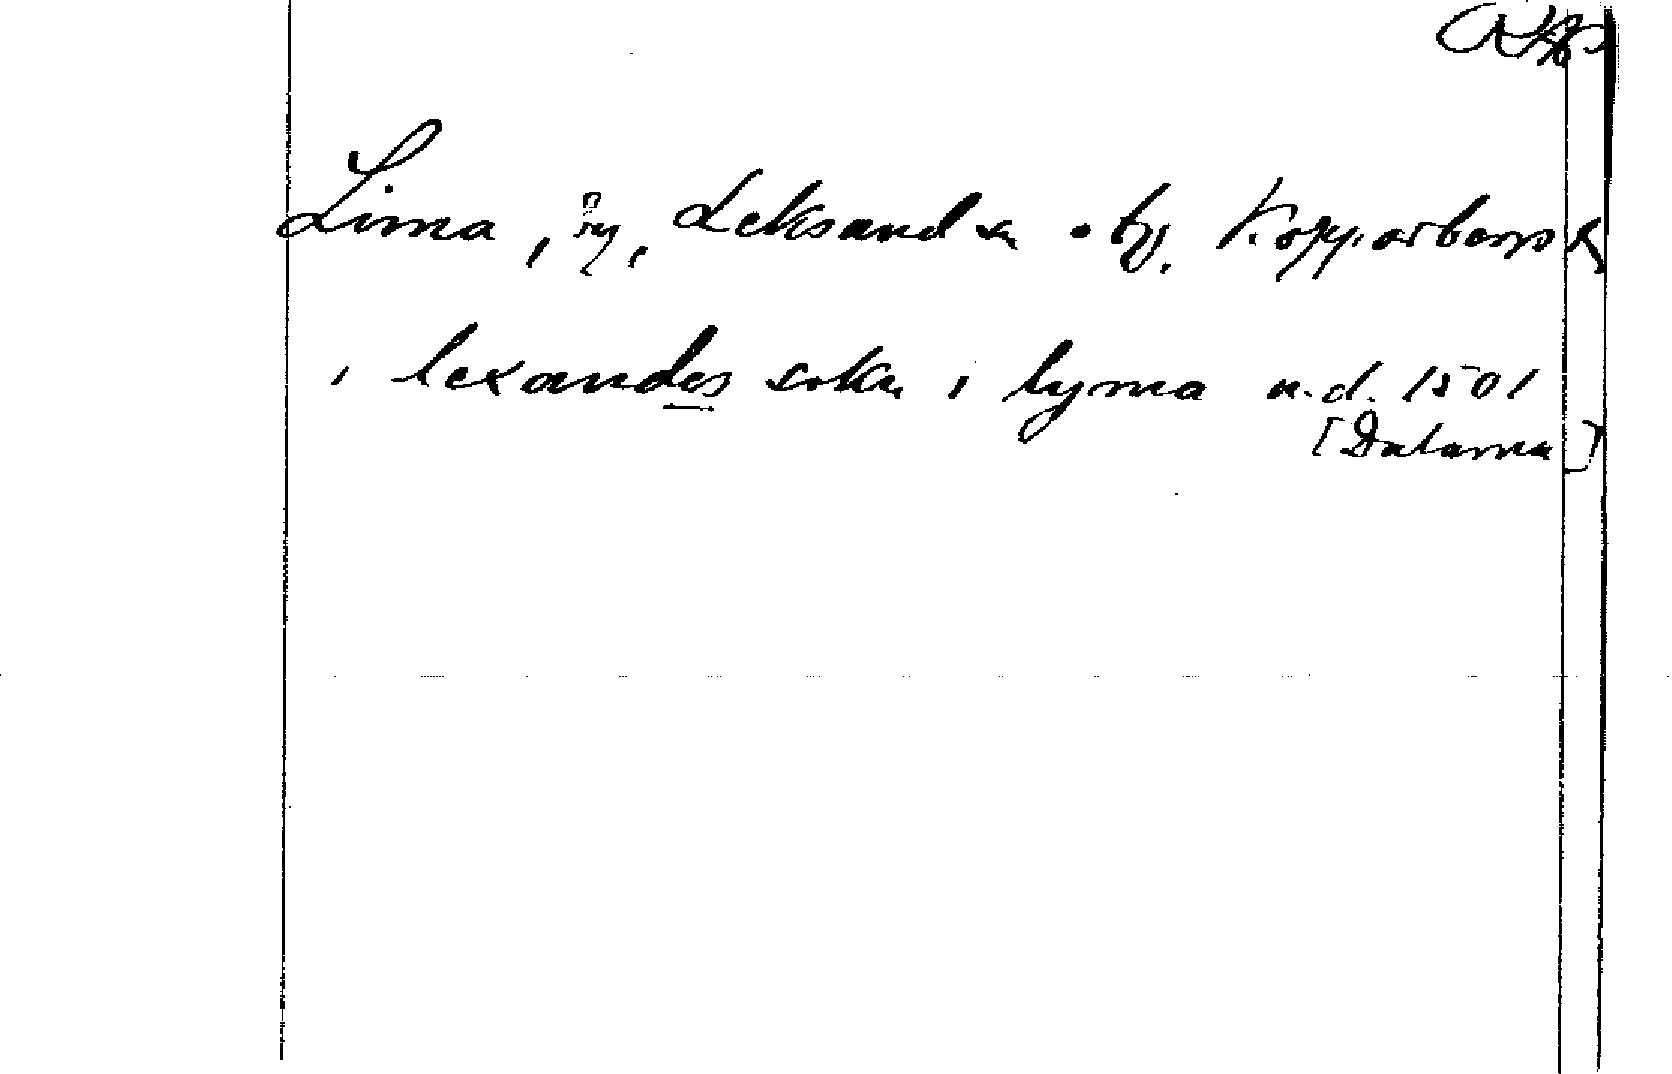 Lima, by, Leksands sn o tg. Kopparbergs l
i lexandes sokn i lyma u.d. 1501
[Dalarna]